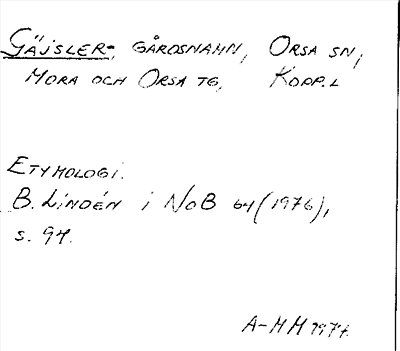 Gäjsler-, gårdsnamn, Orsa sn,
Mora och Orsa tg, Kopp. l
Etymologi.
B. Lindén i NoB 64 (1976),
s. 94.
A-MM 1977.